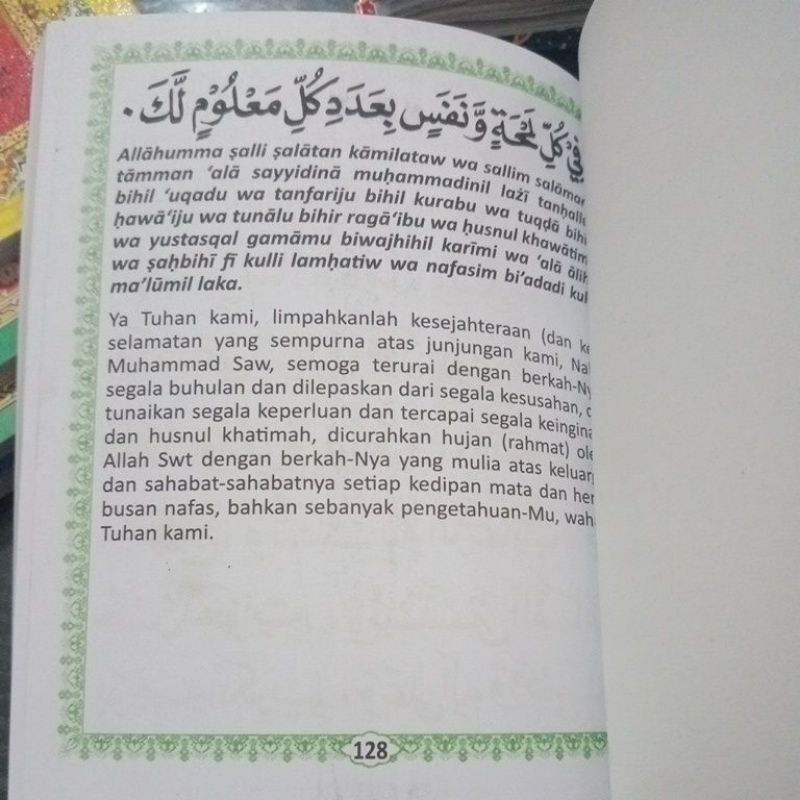 فِيْ كُلِّ لَمْحَةٍ وَّنَفَسٍ بِعَدَدِ كُلِّ مَعْلُوْمٍ لَّكَ.
Allāhumma ṣalli ṣalātan kāmilataw wa sallim
tāmman ‘alā sayyidinā muḥammadinil lażī
bihil ‘uqadu wa tanfariju bihil kurabu wa tuqḍā bihi
ḥawā’iju wa tunālu bihir ragā‘ibu wa ḥusnul khawātim
wa yustasqal gamāmu biwajhihil karīmi wa ‘alā ālih
wa ṣaḥbihī fī kulli lamḥatiw wa nafasim bi’adadi kul
ma’lūmil laka.
Ya Tuhan kami, limpahkanlah kesejahteraan (dan ke
selamatan yang sempurna atas junjungan kami, Na
Muhammad Saw, semoga terurai dengan berkah-Ny
segala buhulan dan dilepaskan dari segala kesusahan, d
tunaikan segala keperluan dan tercapai segala keingina
dan husnul khatimah, dicurahkan hujan (rahmat) ole
Allah Swt dengan berkah-Nya yang mulia atas keluar
dan sahabat-sahabatnya setiap kedipan mata dan hem
busan nafas, bahkan sebanyak pengetahuan-Mu, wah
Tuhan kami.
128